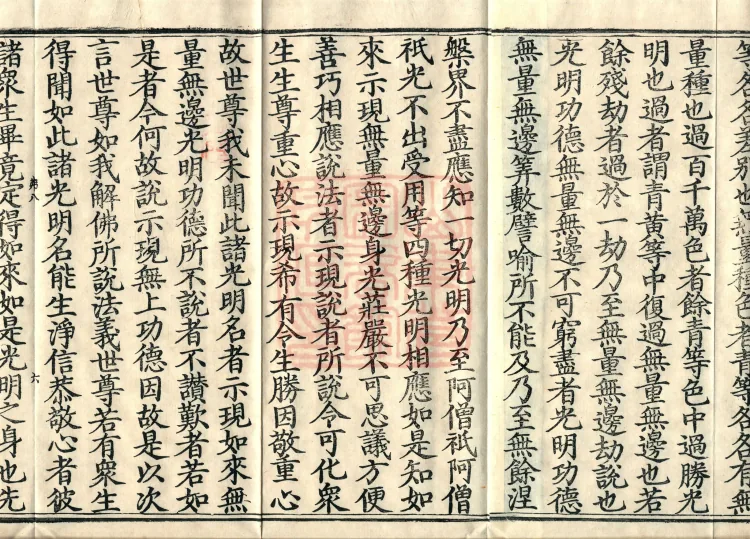 等名各差別也無量種色者青等名各有無
量種也過百千萬色者餘青等色中過勝光
明也過者謂青黃等中復過無量無邊也若
餘殘劫者過於一劫乃至無量無邊劫說也
光明功德無量無邊不可窮盡者光明功德
無量無邊筭數譬喻所不能及乃至無餘涅
槃界不盡應知一切光明乃至阿僧祇阿僧
祇光不出受用等四種光明相應如是知如
來示現無量無邊身光莊嚴不可思議方便
善巧相應說法者示現說者所說令可化衆
生生尊重心故示現希有令生勝因敬重心
故世尊我未聞此諸光明名者示現如來無
量無邊光明功德所不說者不讚歎者若如
是者今何故說示現無上功德因故是以次
言世尊如我解佛所說法義世尊若有衆生
得聞如此諸光明名能生淨信恭敬心者彼
弟八 六
諸衆生畢竟定得如來如是光明之身也先